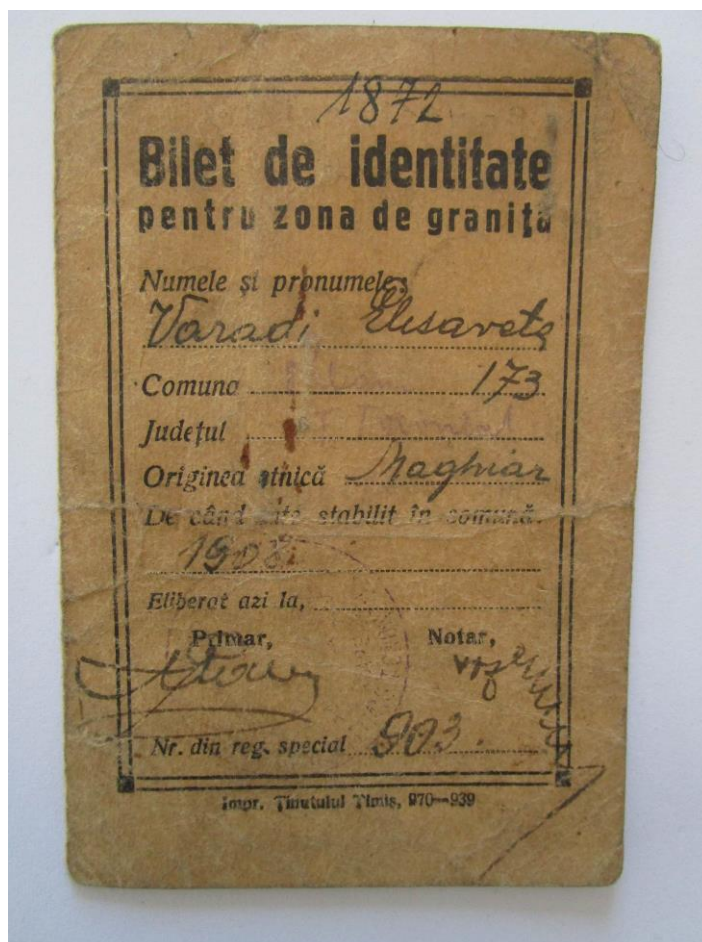 1872
Bilet de identitate
pentru zona de graniță
Numele și pronumele:
Varadi Elisaveta
Comuna 173
Județul
Originea etnică Maghiar
De când este stabilit în comună.
1903
Eliberat azi la,
Primar, Notar,
Nr. din reg. special 903.
Impr. Ținutului Timiș, 970—939